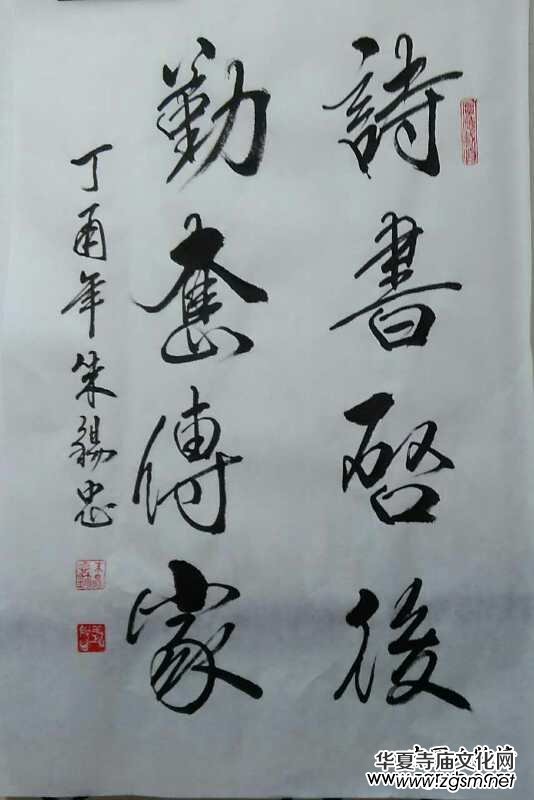 詩書啓後
勤奮傳家
丁酉年朱錫忠
华夏寺庙文化网
www.lzgsm.net